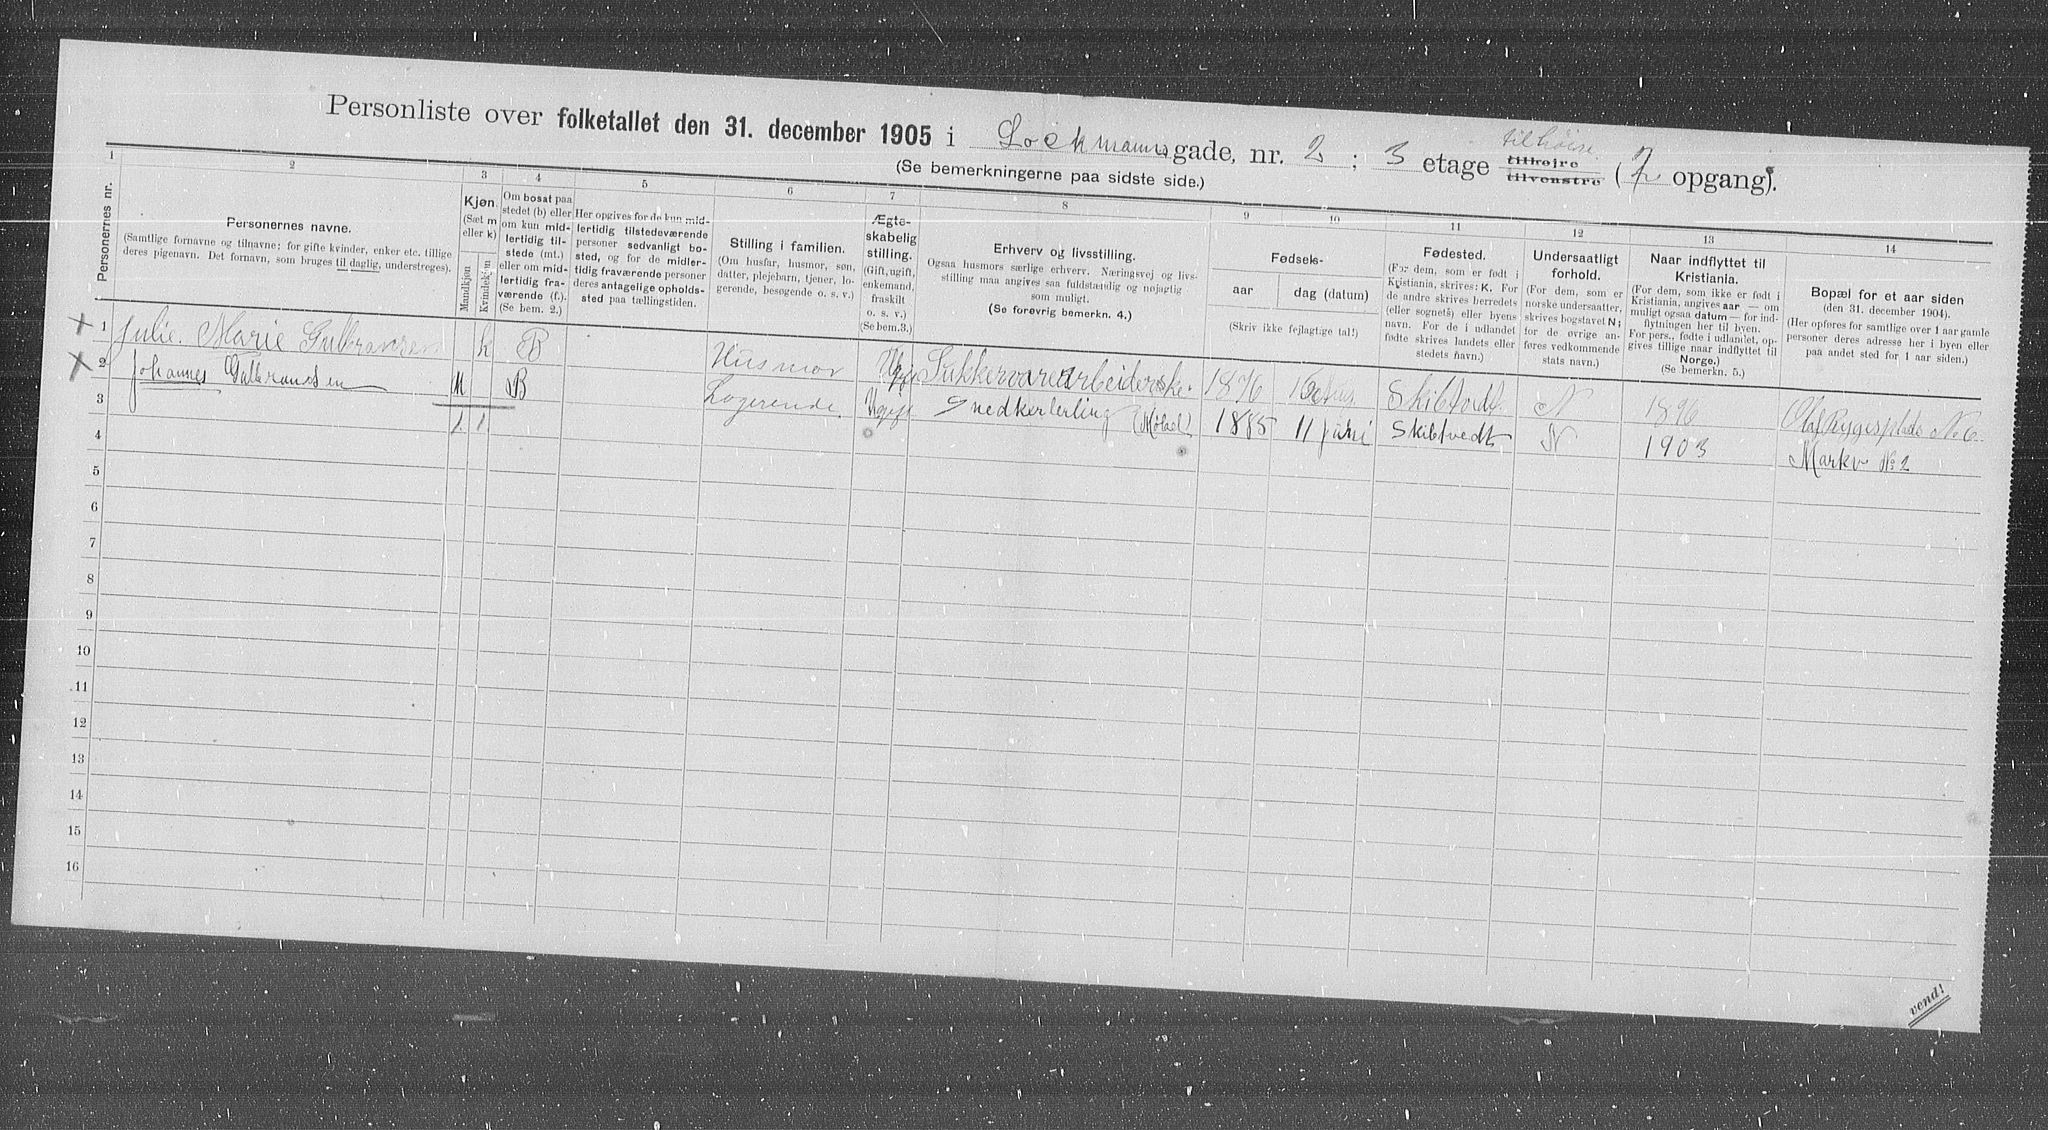 Personliste over folketallet den 31. december 1905 i Lockmanns gade, nr. 2 ; 3 etage tilhøire tilhøjre tilvenstre ( opgang).
(Se bemerkningerne paa sidste side.)
1 2 3 4 5 6 7 8 9 10 11 12 13 14
Personernes nr.
Personernes navne.
(Samtlige fornavne og tilnavne; for gifte kvinder, enker etc. tillige
deres pigenavn. Det fornavn, som bruges til daglig, understreges).
Kjøn.
(Sæt m
eller k)
Mandkjøn
Kvindekjøn
Om bosat paa
stedet (b) eller
om kun mid-
lertidig til-
stede (mt.)
eller om mid-
lertidig fra-
værende (f.).
(Se bem. 2.)
Her opgives for de kun mid-
lertidig tilstedeværende
personer sedvanligt bo-
sted, og for de midler-
tidig fraværende personer
deres antagelige opholds-
sted paa tællingstiden.
Stilling i familien.
(Om husfar, husmor, søn,
datter, plejebarn, tjener, lo-
gerende, besøgende o. s. v.)
Ægte-
skabelig
stilling.
(Gift, ugift,
enkemand,
fraskilt
o. s. v.)
(Se bem. 3.)
Erhverv og livsstilling.
Ogsaa husmors særlige erhverv. Næringsvej og livs-
stilling maa angives saa fuldstændig og nøjagtig
som muligt.
(Se forøvrig bemerkn. 4.)
Fødsels-
aar
dag (datum)
(Skriv ikke fejlagtige tal!)
Fødested.
(For dem, som er født i
Kristiania, skrives: K. For
de andre skrives herredets
(eller sognets) eller byens
navn. For de i udlandet
fødte skrives landets eller
stedets navn.)
Undersaatligt
forhold.
(For dem, som er
norske undersaatter,
skrives bogstavet N;
for de øvrige an-
føres vedkommende
stats navn.)
Naar indflyttet til
Kristiania.
(For dem, som ikke er født i
Kristiania, angives aar — om
muligt ogsaa datum — for ind-
flytningen her til byen.
For pers., fødte i udlandet, op-
gives tillige naar indflyttet til
Norge.)
(Se bemerkn. 5.)
Bopæl for et aar siden
(den 31. december 1904).
(Her opføres for samtlige over 1 aar gamle
personer deres adresse her i byen eller
paa andet sted for 1 aar siden.)
1 Julie Marie Gulbransen k B Husmor Ugif Sukkervarearbeiderske 1876 N 1896 Olaf Ryggesplads No 6
2 Johannes Gulbrandsen M B Logerende Ugift Snedkerlerling (Møbel) 1885 11 juni Skibtvedt N 1903 Markv No 2
3 1 1
4
5
6
7
8
9
10
11
12
13
14
15
16
vend!